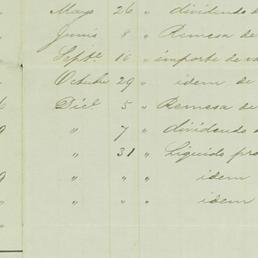 Mayo 26 " dividendo d
Junio 8 " Remesa de
Septe. 16 " importe de va
Octubre 29 " idem de
Dice. 5 " Remesa de
9 " 7 " dividendo d
" 31 " Líquido pro
9 " " " idem
" " " idem